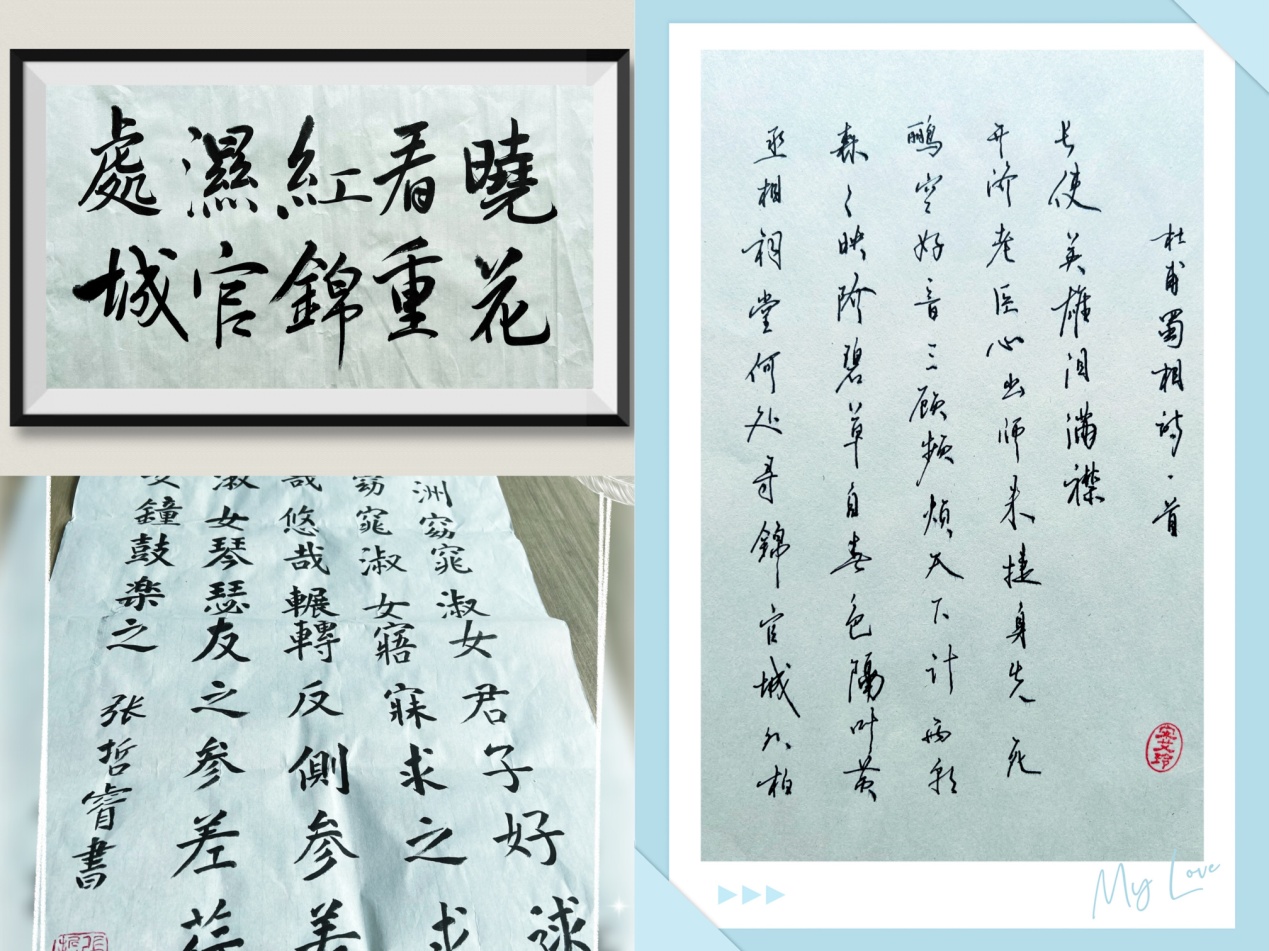 曉看紅濕處
花重錦官城
洲窈窕淑女君子好逑
窈窕淑女寤寐求之求
哉悠哉輾轉反側参差
淑女琴瑟友之参差荇
鐘鼓楽之
张哲睿書
丞相祠堂何处寻錦官城外柏
森々映阶碧草自春色隔叶黄
鹂空好音三顾频烦天下计两朝
开济老臣心出师未捷身先死
长使英雄泪满襟
杜甫蜀相诗一首
宋艾玲
My Love